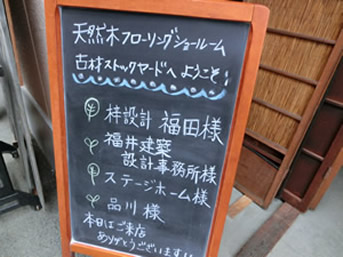 天然木フローリングショールーム
古材ストックヤードへようこそ!
桂設計 福田様
福井建築
設計事務所様
ステージホーム様
品川様
本日はご来店
ありがとうございます!!